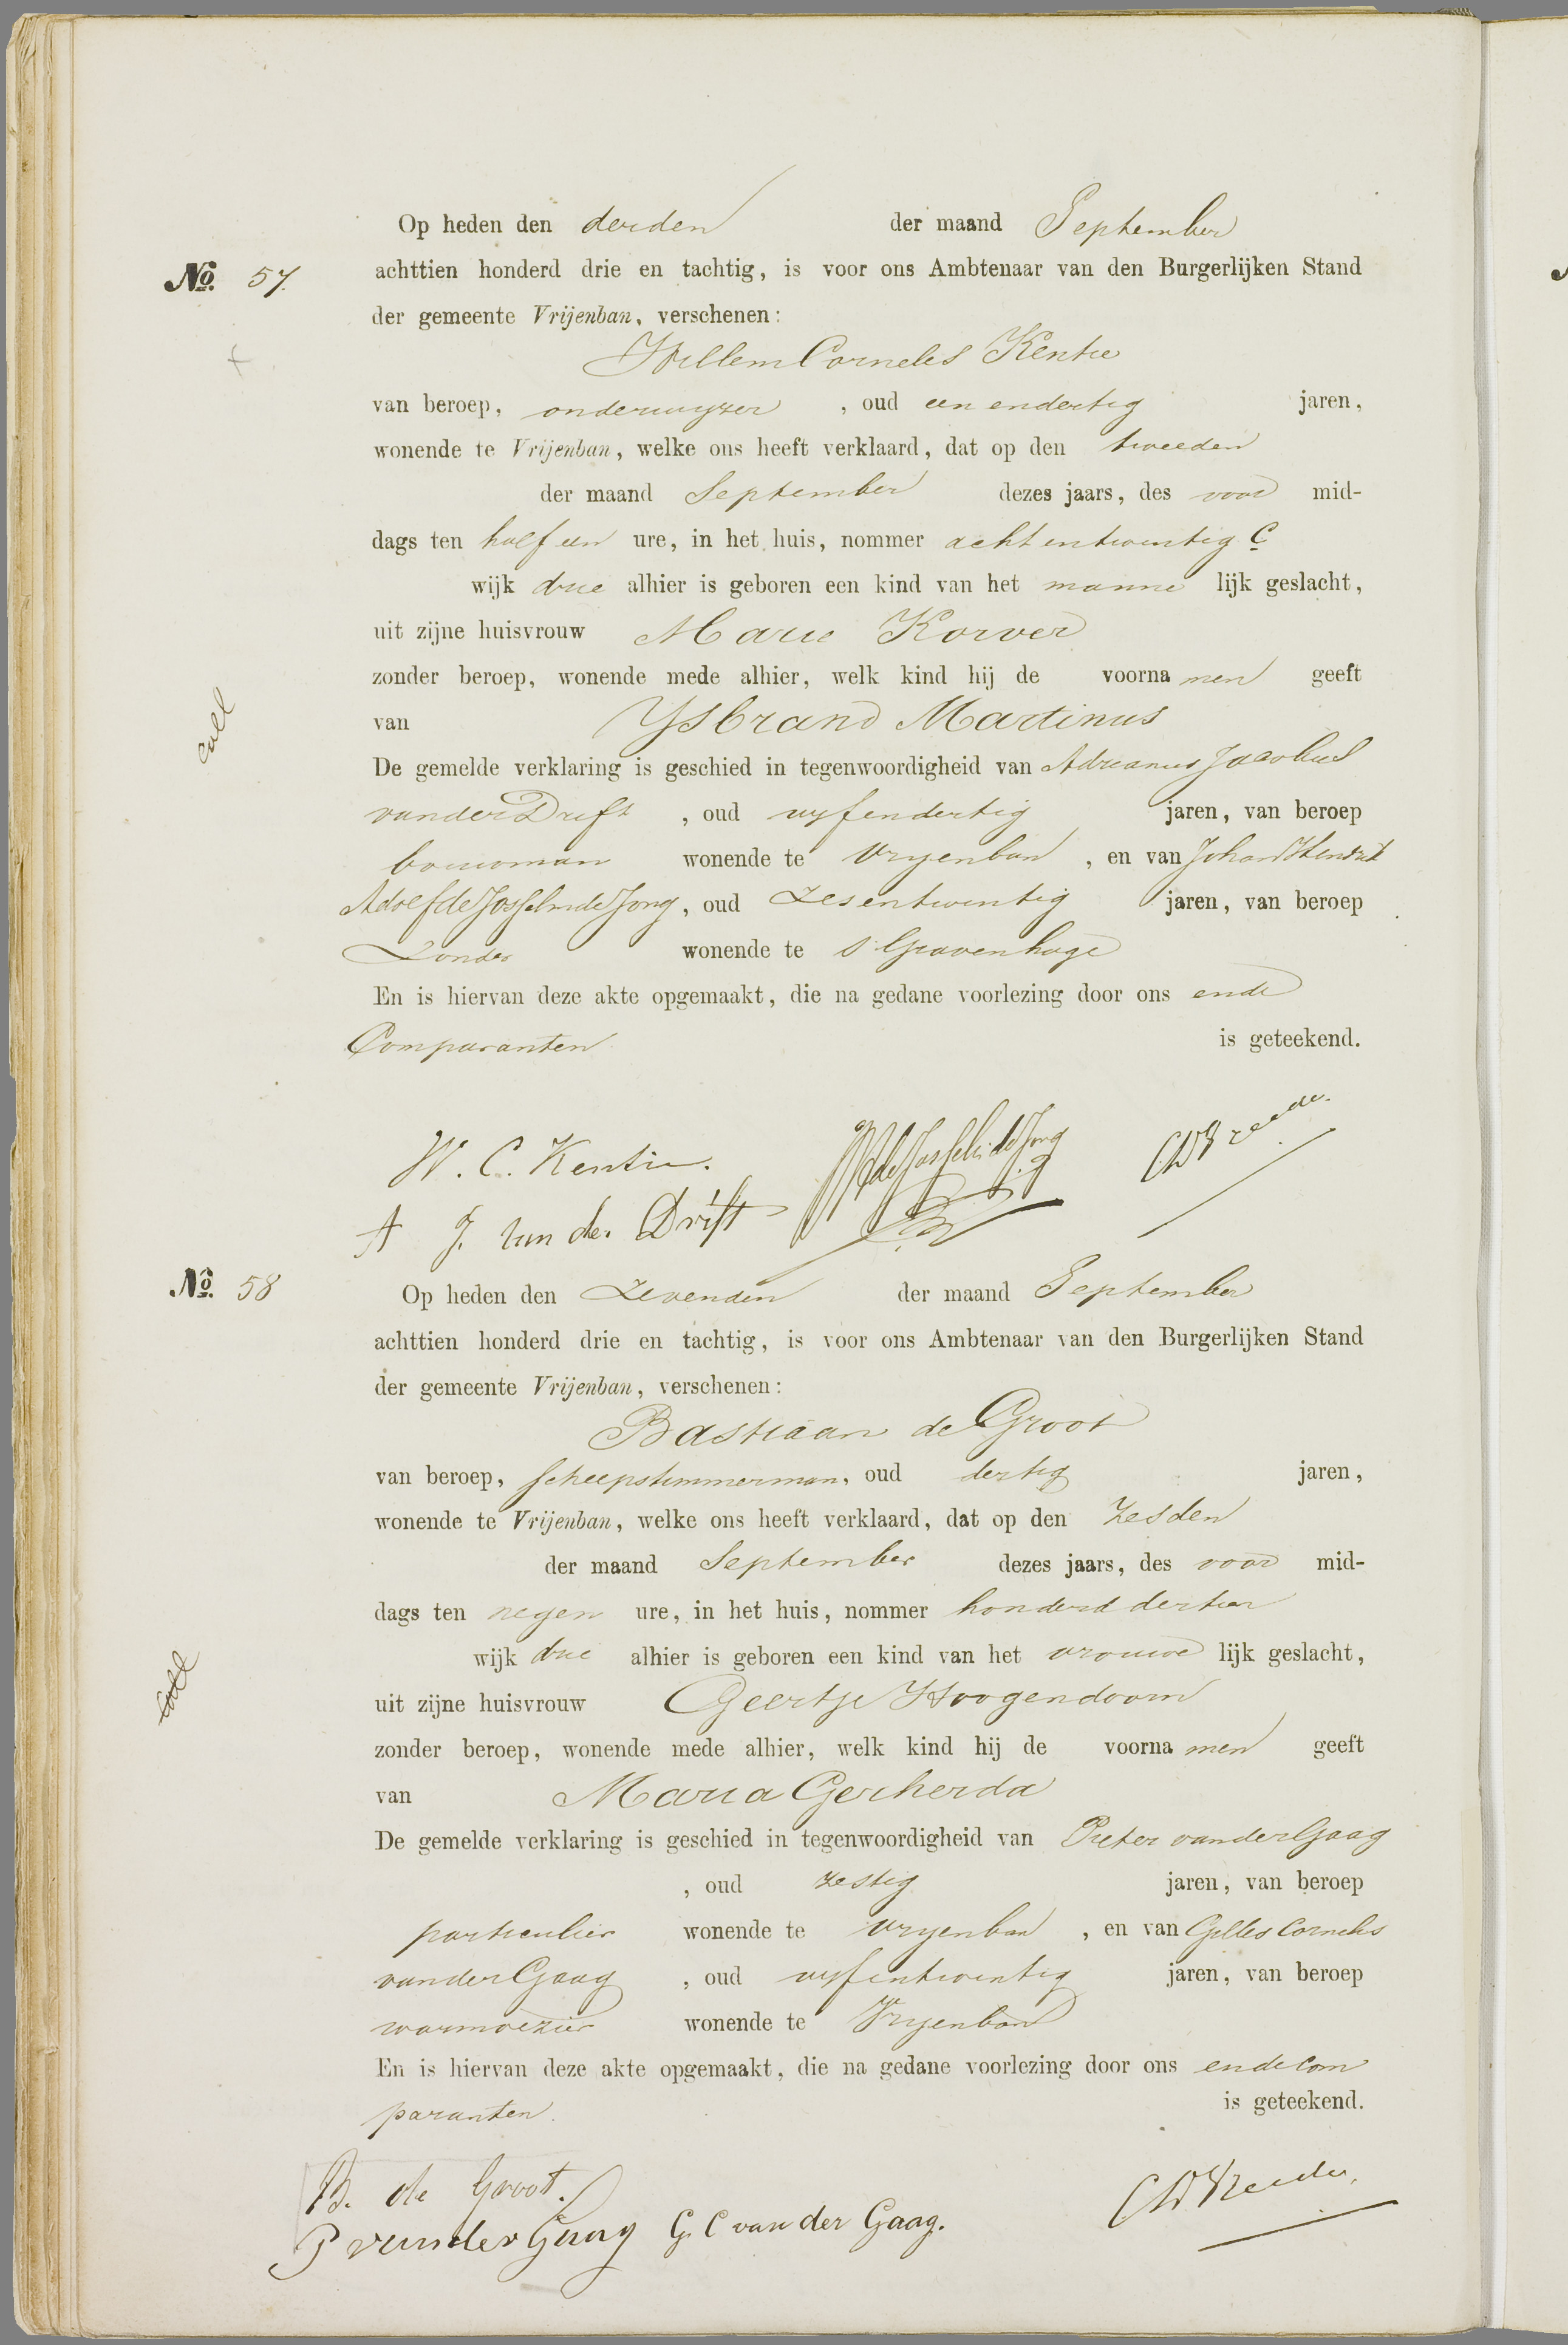 Op heden den derden der maand September
No. 57. achttien honderd drie en tachtig, is voor ons Ambtenaar van den Burgerlijken Stand
der gemeente Vrijenban, verschenen:
Willem Cornelis Kentie
van beroep, onderwyzer, oud een en dertig jaren,
wonende te Vrijenban, welke ons heeft verklaard, dat op den tweeden
der maand September dezes jaars, des voor mid-
dags ten half een ure, in het huis, nommer acht en twintig C
wijk drie alhier is geboren een kind van het manne lijk geslacht,
uit zijne huisvrouw Marie Korver
zonder beroep, wonende mede alhier, welk kind hij de voorna men geeft
van Ysbrand Martinus
coll
De gemelde verklaring is geschied in tegenwoordigheid van Adrianus Jacobus
van der Drift, oud vyf en dertig jaren, van beroep
bouwman wonende te Vryenban, en van Johan Hendrik
Adolf de Josselin de Jong, oud zes en twintig jaren, van beroep
Zonder wonende te s Gravenhage
En is hiervan deze akte opgemaakt, die na gedane voorlezing door ons en de
Comparanten is geteekend.
W. C. Kentie. de Josselin de Jong
A J. van der Drift
No. 58 Op heden den Zevenden der maand September
achttien honderd drie en tachtig, is voor ons Ambtenaar van den Burgerlijken Stand
der gemeente Vrijenban, verschenen:
Bastiaan de Groot
van beroep, scheepstimmerman, oud dertig jaren,
wonende te Vrijenban, welke ons heeft verklaard, dat op den Zesden
der maand September dezes jaars, des voor mid-
dags ten negen ure, in het huis, nommer honderd dertien
wijk drie alhier is geboren een kind van het vrouwe lijk geslacht,
coll
uit zijne huisvrouw Geertje Hoogendoorn
zonder beroep, wonende mede alhier, welk kind hij de voorna men geeft
van Maria Gerherda
De gemelde verklaring is geschied in tegenwoordigheid van Pieter van der Gaag
, oud zestig jaren, van beroep
particulier wonende te Vryenban, en van Gilles Cornelis
van der Gaag, oud vyf en twintig jaren, van beroep
warmoezier wonende te Vryenban
En is hiervan deze akte opgemaakt, die na gedane voorlezing door ons en de com
paranten. is geteekend.
B. de Groot.
P van der Gaag G. C van der Gaag.